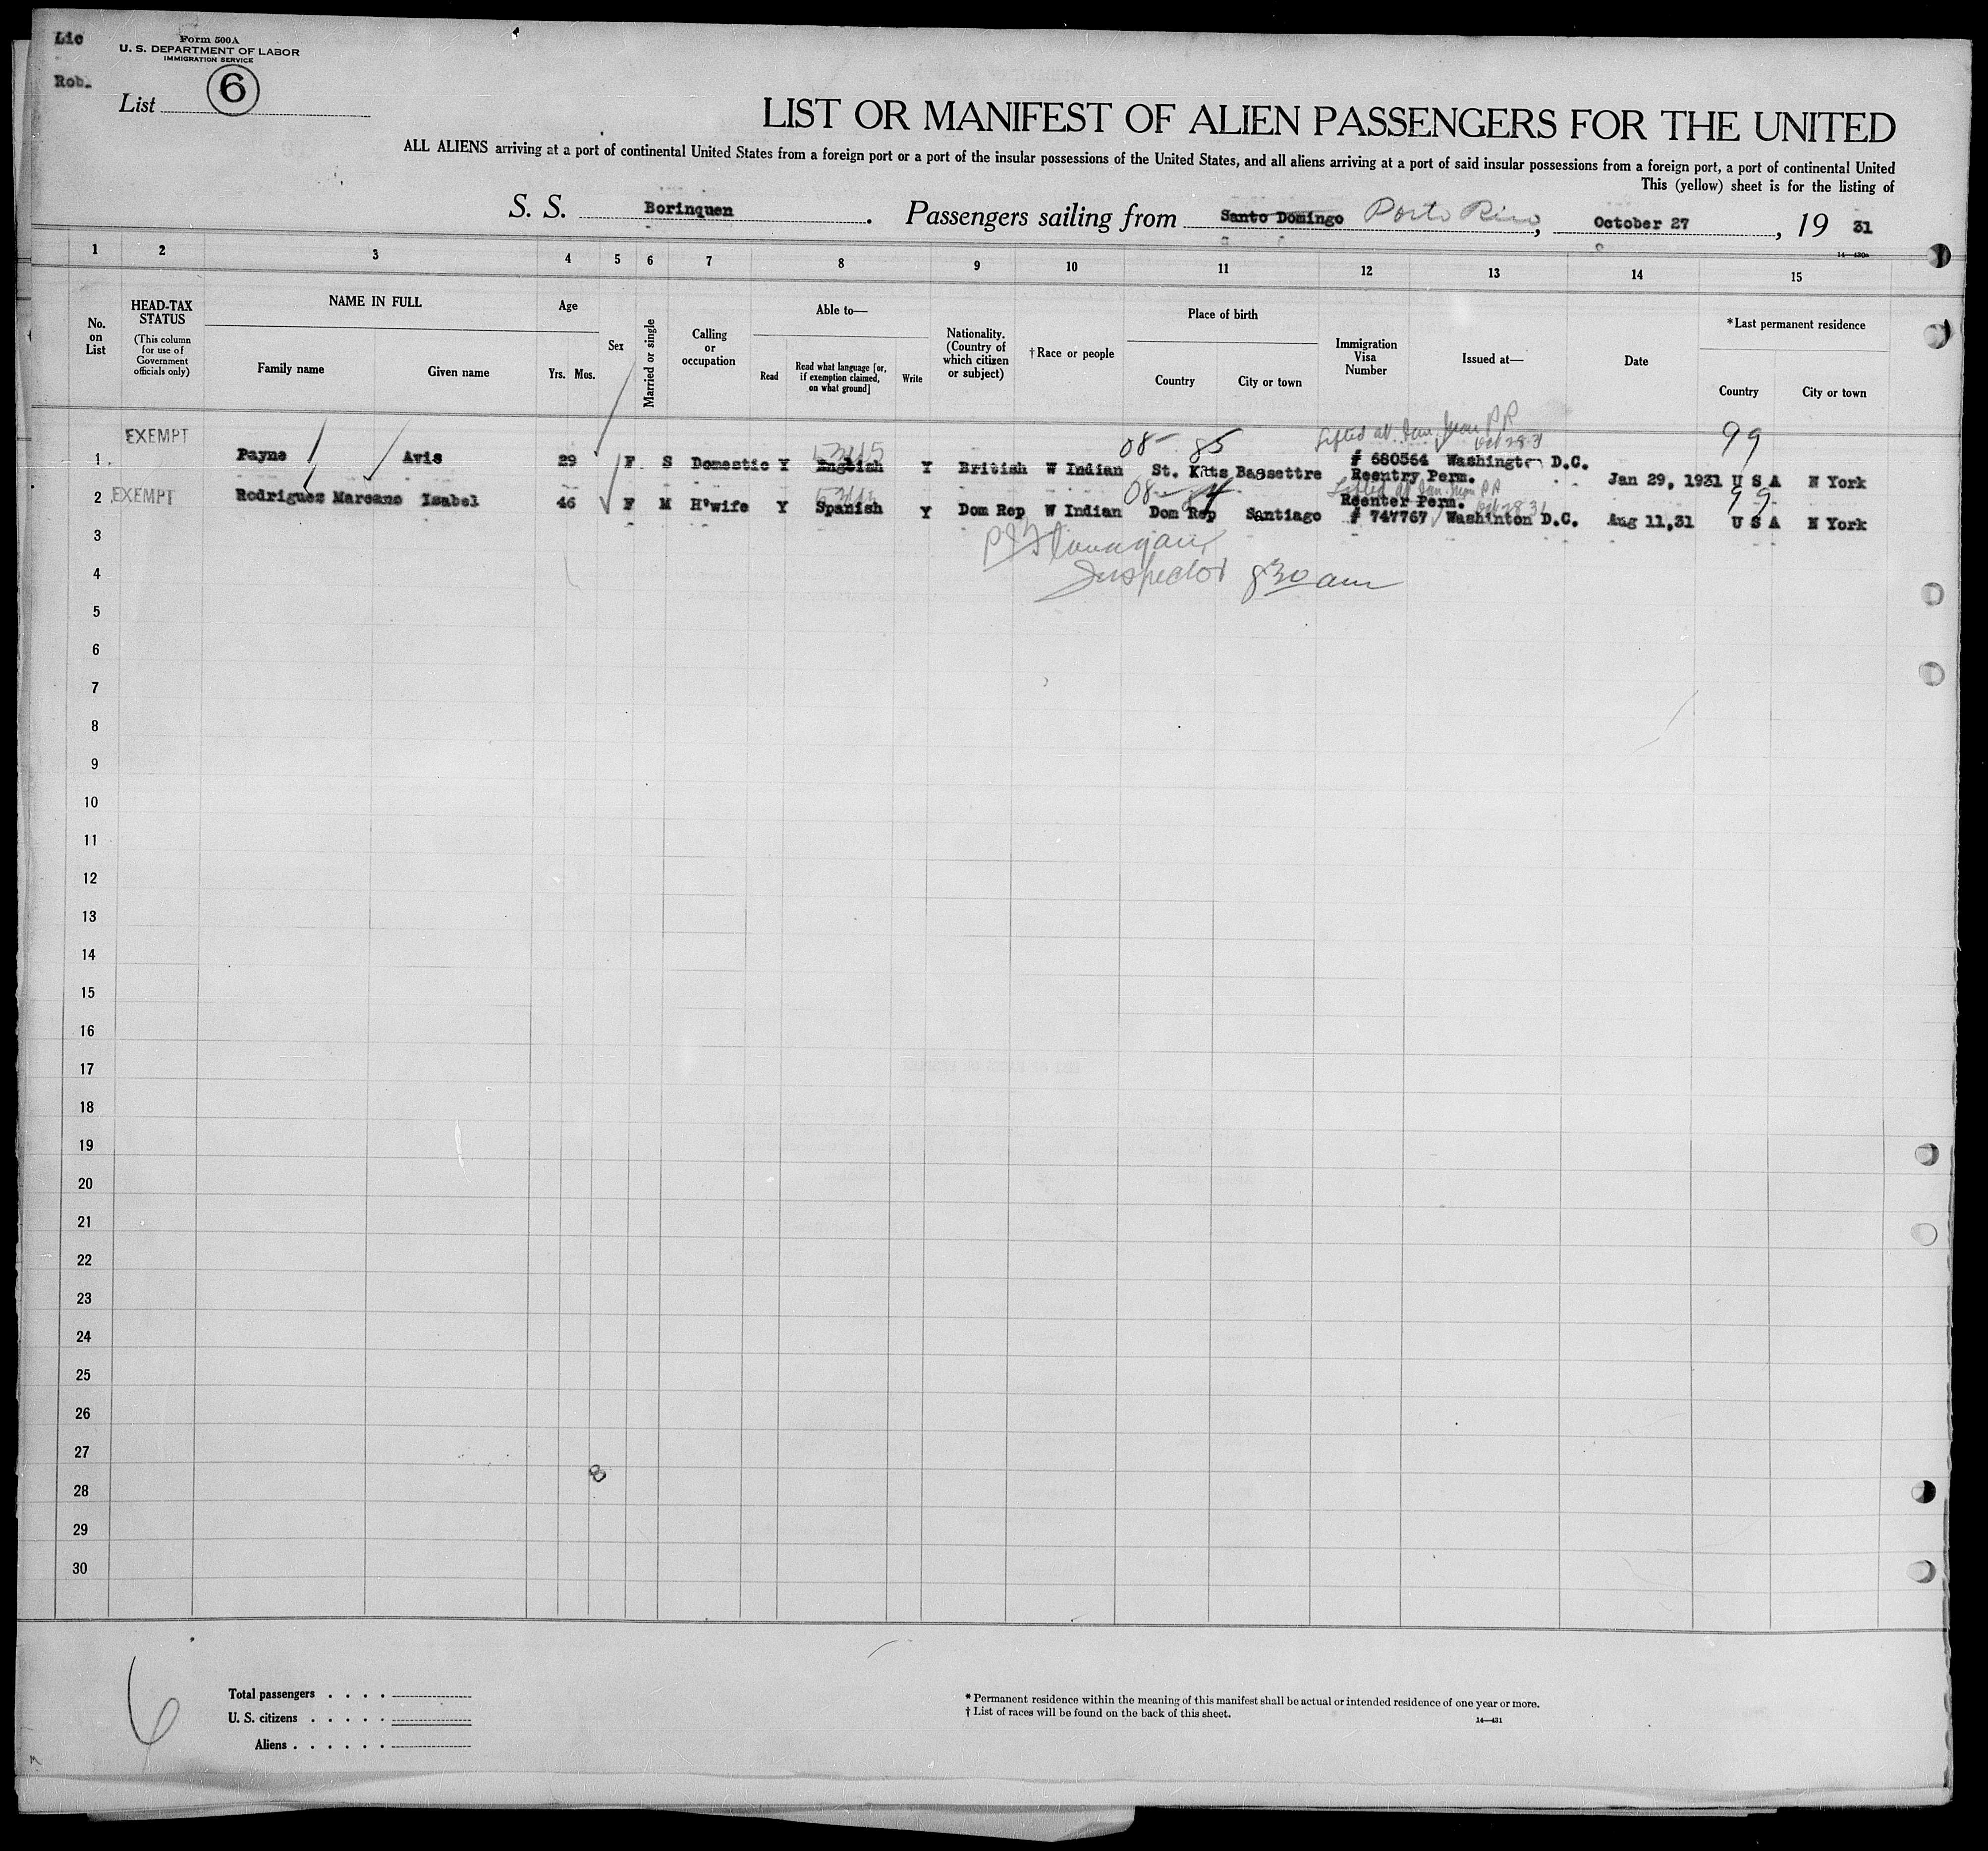 Lic
Form 500A
U. S. DEPARTMENT OF LABOR
IMMIGRATION SERVICE
Rob.
List 6
LIST OR MANIFEST OF ALIEN PASSENGERS FOR THE UNITED
ALL ALIENS arriving at a port of continental United States from a foreign port or a port of the insular possessions of the United States, and all aliens arriving at a port of said insular possessions from a foreign port, a port of continental United
This (yellow) sheet is for the listing of
S. S. Borinquen. Passengers sailing from Santo Domingo Porto Rico, October 27, 19 31
14—430a
1 2 3 4 5 6 7 8 9 10 11 12 13 14 15
No. on List
HEAD-TAX STATUS
(This column for use of Government officials only)
NAME IN FULL
Family name
Given name
Age
Yrs. Mos.
Sex
Married or single
Calling or occupation
Able to—
Read
Read what language [or, if exemption claimed, on what ground]
Write
Nationality. (Country of which citizen or subject)
† Race or people
Place of birth
Country
City or town
Immigration Visa Number
Issued at—
Date
*Last permanent residence
Country
City or town
08- 85 Lifted at San Juan P R Oct 28 31 99
1 EXEMPT Payne Avis 29 F S Domestic Y English Y British W Indian St. Kitts Bassettre # 680564 Washington D.C. Reentry Perm. Jan 29, 1931 U S A N York
08- 84 Lifted at San Juan P R Oct 28 31 99
2 EXEMPT Rodriguez Marcano Isabel 46 F M H'wife Y Spanish Y Dom Rep W Indian Dom Rep Santiago Reenter Perm. # 747767 Washinton D.C. Aug 11,31 U S A N York
3
Inspector 8 30 am
4
5
6
7
8
9
10
11
12
13
14
15
16
17
18
19
20
21
22
23
24
25
26
27
28
29
30
6
Total passengers . . . .
U. S. citizens . . . . .
Aliens . . . . . .
* Permanent residence within the meaning of this manifest shall be actual or intended residence of one year or more.
† List of races will be found on the back of this sheet.
14—431